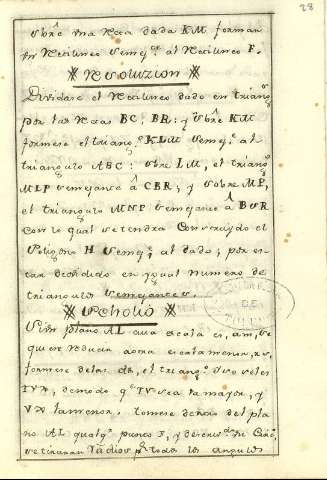 28
Sobre una Recta dada KM formar
un Rectilineo Semejte al Rectilineo F.
Resoluzion
Dividase el Rectilineo dado en triang.
por las Rectas BC, BR: y Sobre KM
formese el triang. KLM Semejte al
triangulo ABC: Sobre LM, el triang.
MLP Semejante â CBR; y Sobre MP,
el triangulo MNP Semejante â BSR
Con lo qual se tendra Construydo el
Poligono H Semejte al dado; por es-
tar dividido en ygual numero de
triangulos Semejantes.
Scholio
Si un plano AL cuia escala es, am, se
quiere reducir a otra escala menor,
formese de las dos, el triang.
de modo qe TV sea la mayor, y
VX la menor. tomese dentro del pla
no AL qualqr punto F, y
se tiraran Radios pr todos los angulos